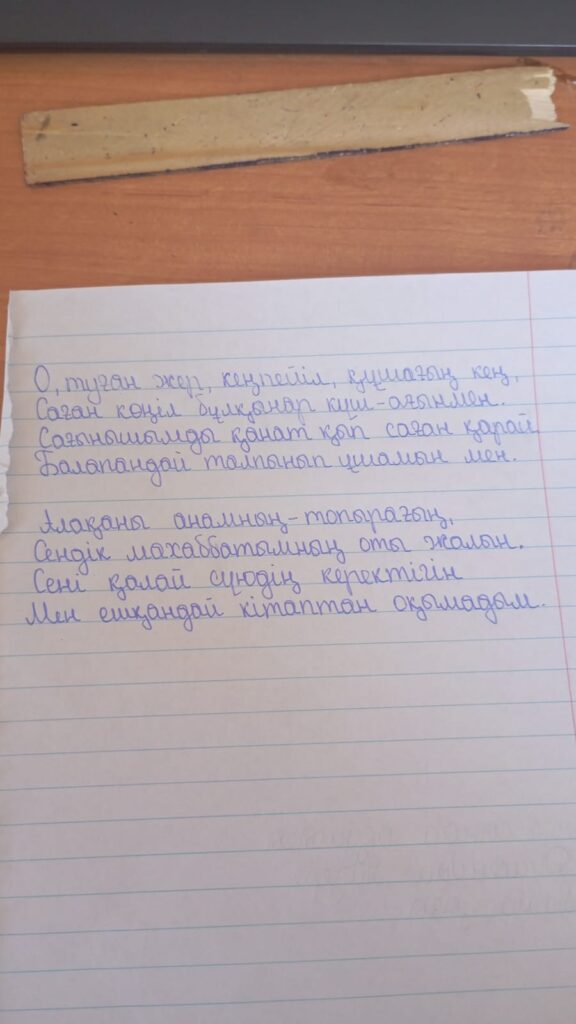 О, туған жер, кеңпейіл, құшағың кең,
Саған көңіл бұлқынар күш-ағынмен.
Сағынышымды қанат қып саған қарай,
Балапандай талпынып ұшамын мен.
Алақаны анамның-топырағың,
Сендік махаббатымның оты жалын.
Сені қалай сүюдің керектігін
Мен ешқандай кітаптан оқымадым.